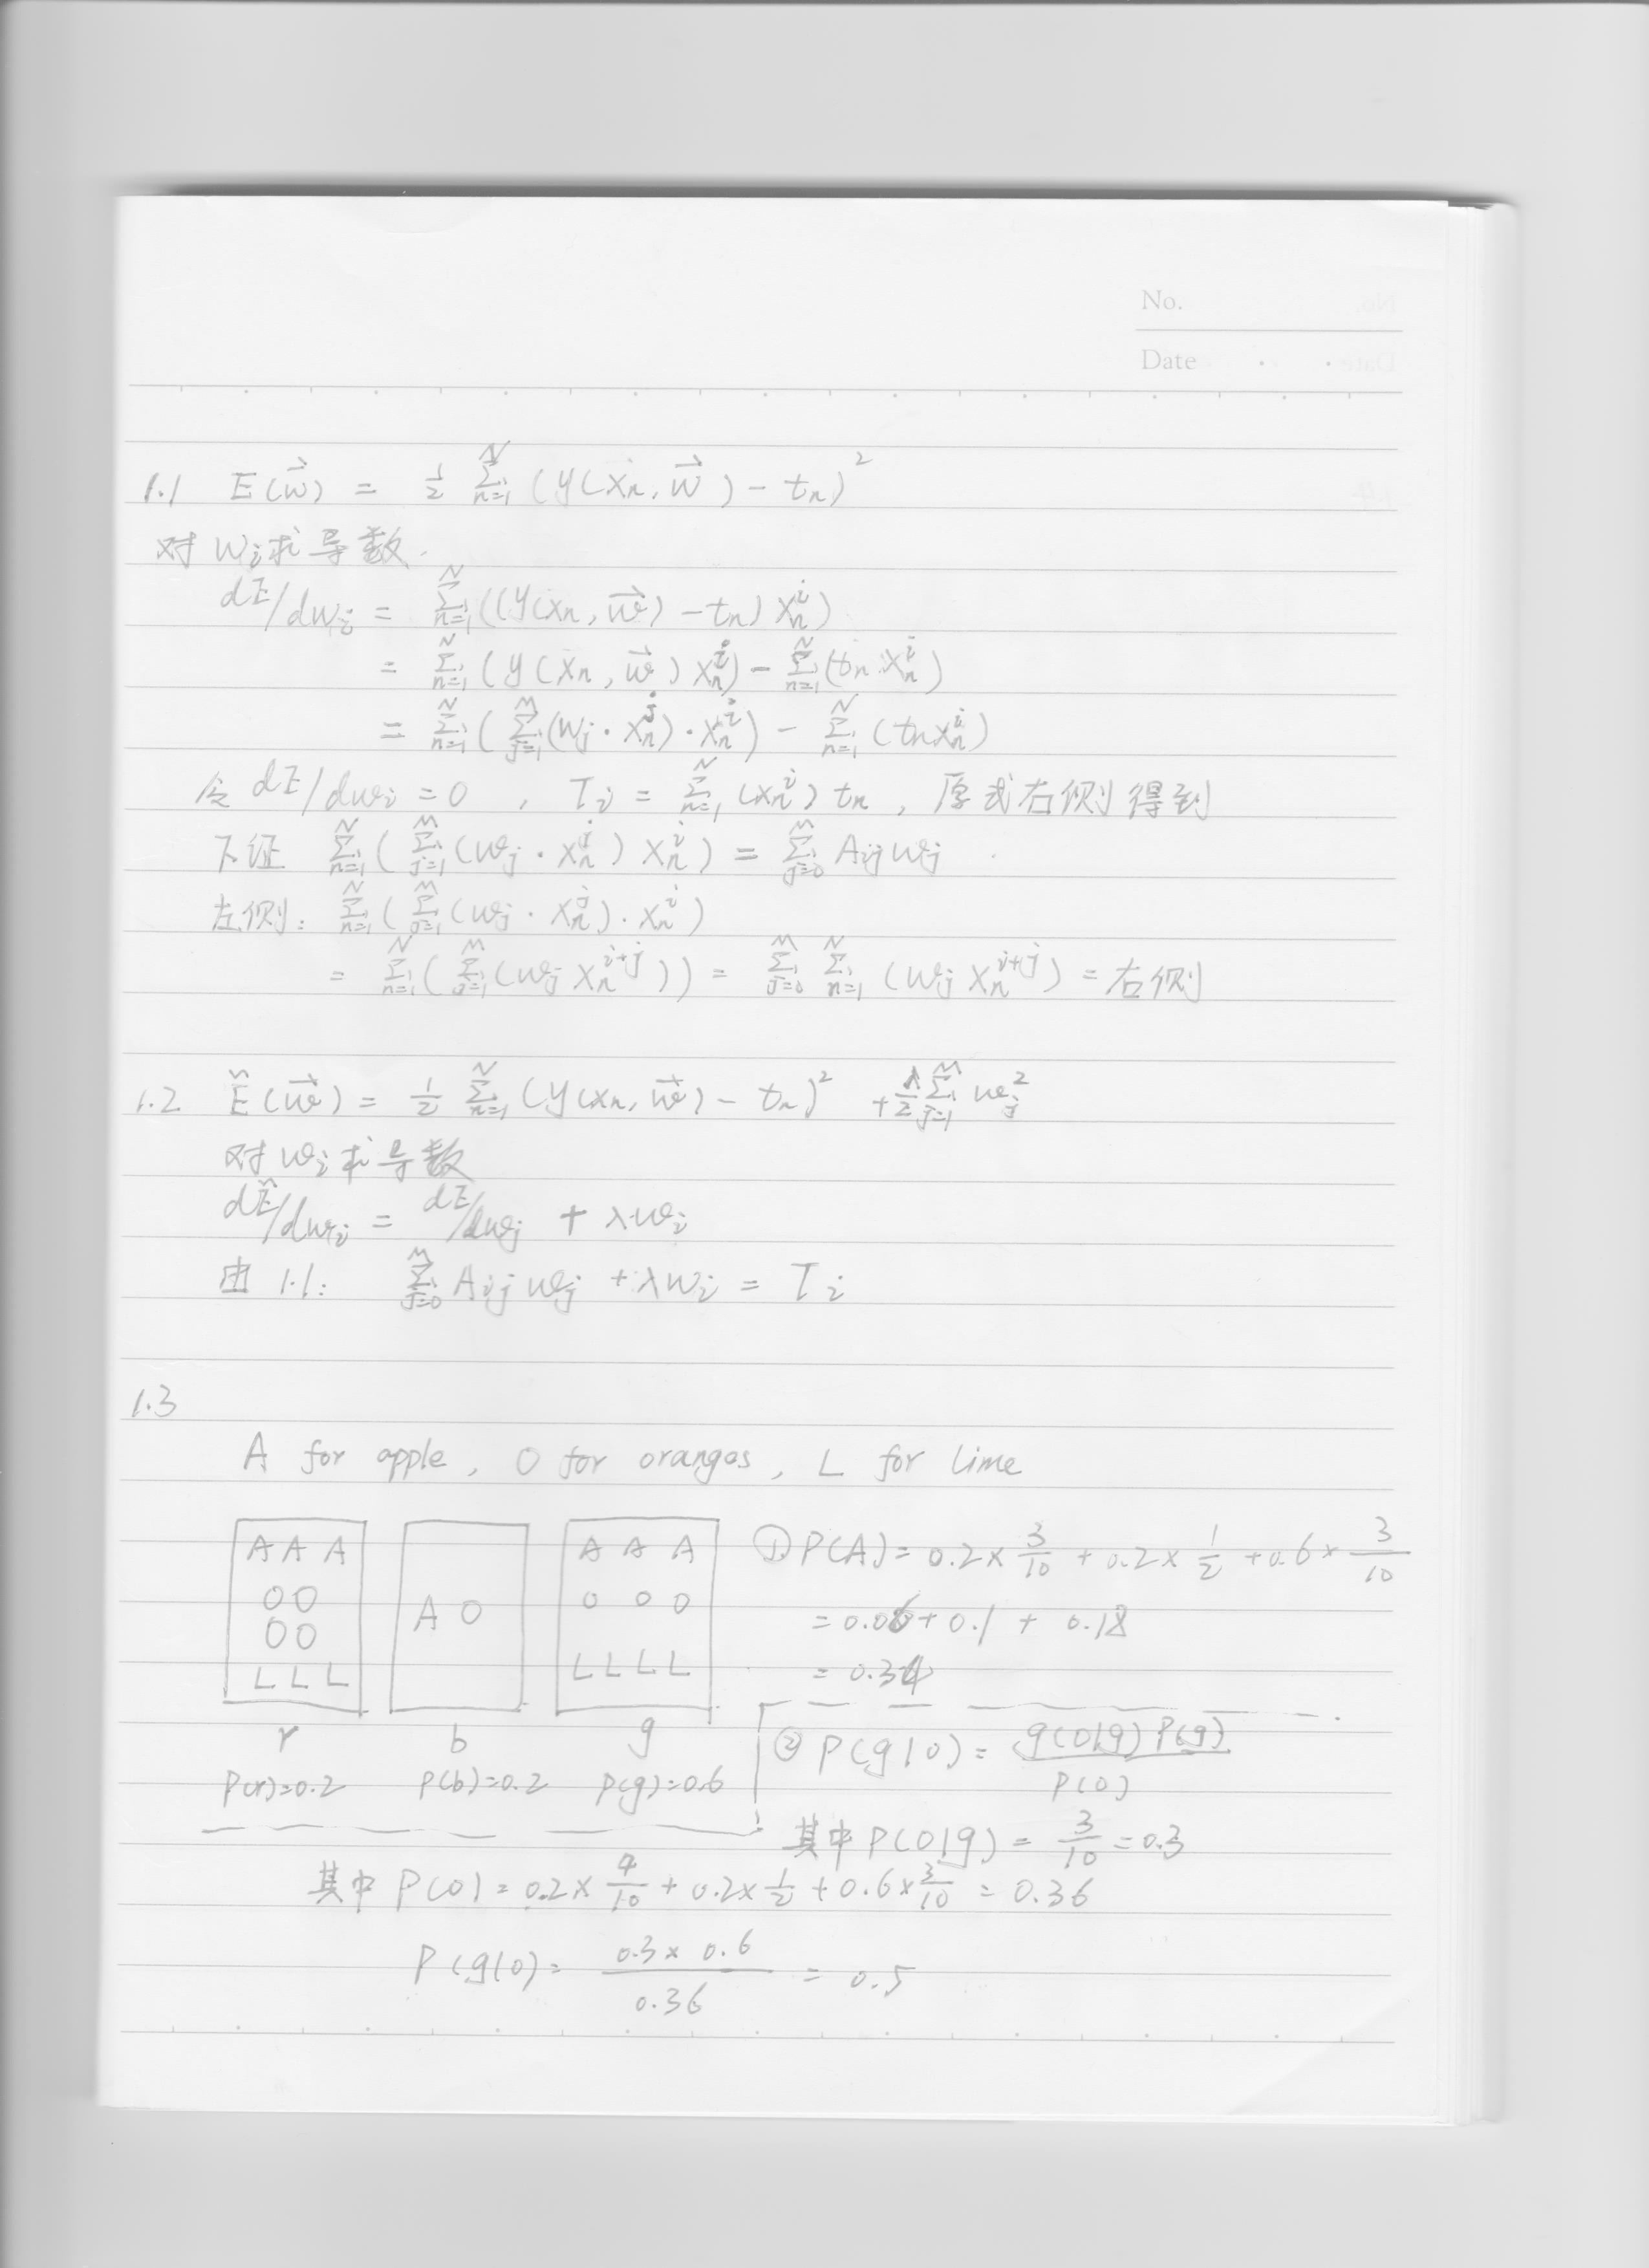 No.
Date
1.1 E(w⃗) = 1/2 Σ_{n=1}^{N} (y(x_n, w⃗) - t_n)^2
对 w_i 求导数.
dE/dw_i = Σ_{n=1}^{N} ((y(x_n, w⃗) - t_n) x_n^i)
= Σ_{n=1}^{N} (y(x_n, w⃗) x_n^i) - Σ_{n=1}^{N} (t_n x_n^i)
= Σ_{n=1}^{N} (Σ_{j=1}^{M} (w_j · x_n^j) · x_n^i) - Σ_{n=1}^{N} (t_n x_n^i)
令 dE/dw_i = 0 , T_i = Σ_{n=1}^{N} (x_n^i) t_n , 原式右侧得到
下证 Σ_{n=1}^{N} (Σ_{j=1}^{M} (w_j · x_n^j) x_n^i) = Σ_{j=0}^{M} A_{ij} w_j .
左侧: Σ_{n=1}^{N} (Σ_{j=1}^{M} (w_j · x_n^j) · x_n^i)
= Σ_{n=1}^{N} (Σ_{j=1}^{M} (w_j x_n^{i+j})) = Σ_{j=0}^{M} Σ_{n=1}^{N} (w_j x_n^{i+j}) = 右侧
1.2 Ẽ(w⃗) = 1/2 Σ_{n=1}^{N} (y(x_n, w⃗) - t_n)^2 + λ/2 Σ_{j=1}^{M} w_j^2
对 w_i 求导数
dẼ/dw_i = dE/dw_j + λw_i
由 1.1: Σ_{j=0}^{M} A_{ij} w_j + λw_i = T_i
1.3
A for apple, O for oranges, L for lime
A A A
OO
OO
L L L
r
P(r)=0.2
A O
b
P(b)=0.2
A A A
O O O
L L L L
g
P(g)=0.6
① P(A) = 0.2 × 3/10 + 0.2 × 1/2 + 0.6 × 3/10
= 0.06 + 0.1 + 0.18
= 0.34
② P(g|O) = g(O|g) P(g) / P(O)
其中 P(O|g) = 3/10 = 0.3
其中 P(O) = 0.2 × 4/10 + 0.2 × 1/2 + 0.6 × 3/10 = 0.36
P(g|O) = 0.3 × 0.6 / 0.36 = 0.5